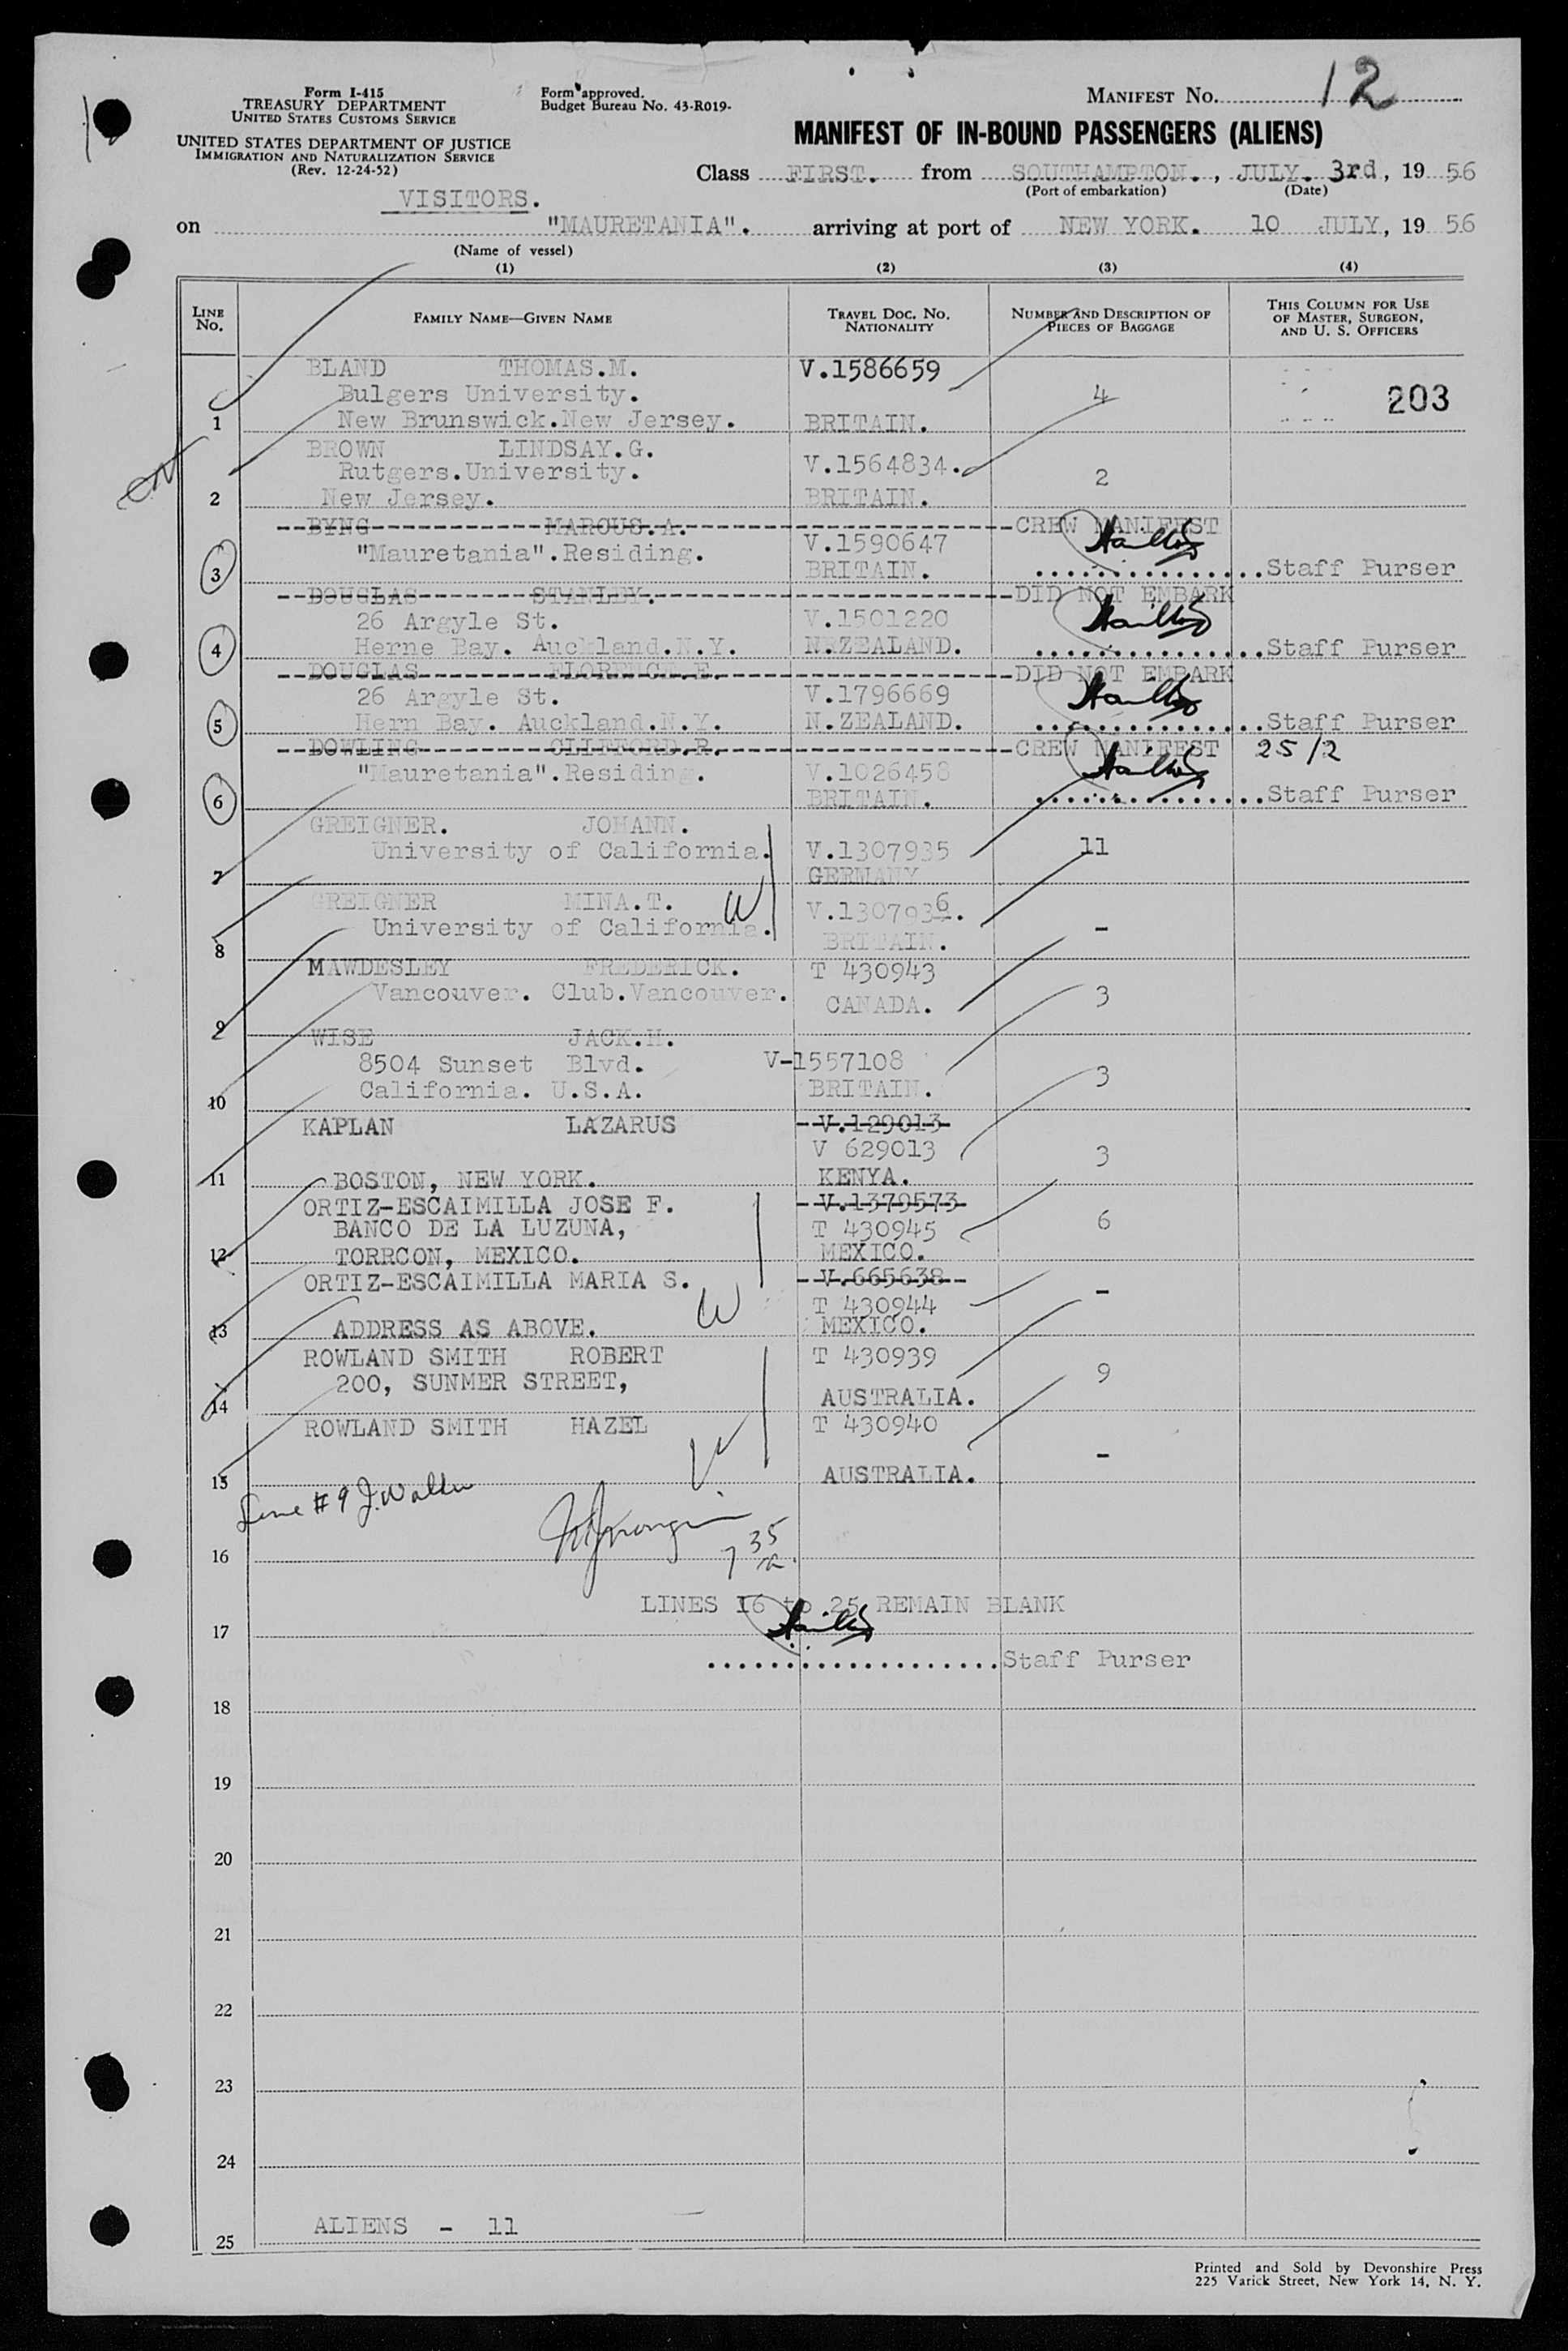 Form I-415
TREASURY DEPARTMENT
UNITED STATES CUSTOMS SERVICE
UNITED STATES DEPARTMENT OF JUSTICE
IMMIGRATION AND NATURALIZATION SERVICE
(Rev. 12-24-52)
Form approved.
Budget Bureau No. 43-R019-
MANIFEST NO. 12
MANIFEST OF IN-BOUND PASSENGERS (ALIENS)
Class FIRST. from SOUTHAMPTON., JULY. 3rd, 19 56
(Port of embarkation) (Date)
VISITORS.
on "MAURETANIA". arriving at port of NEW YORK. 10 JULY, 19 56
(Name of vessel)
(1) (2) (3) (4)
LINE NO. FAMILY NAME—GIVEN NAME TRAVEL DOC. NO. NATIONALITY NUMBER AND DESCRIPTION OF PIECES OF BAGGAGE THIS COLUMN FOR USE OF MASTER, SURGEON, AND U. S. OFFICERS
BLAND THOMAS.M. V.1586659
Bulgers University. 4 203
1 New Brunswick.New Jersey. BRITAIN.
BROWN LINDSAY.G.
Rutgers.University. V.1564834. 2
2 New Jersey. BRITAIN.
--BYNG----------MARCUS.A.----------CREW MANIFEST
"Mauretania".Residing. V.1590647
3 BRITAIN. ...............Staff Purser
--DOUGLAS-------STANLEY.----------DID NOT EMBARK
26 Argyle St. V.1501220
4 Herne Bay. Auckland.N.Y. N.ZEALAND. ...............Staff Purser
--DOUGLAS--------FLORENCE.E.----------DID NOT EMBARK
26 Argyle St. V.1796669
5 Hern Bay. Auckland.N.Y. N.ZEALAND. ...............Staff Purser
--DOWLING--------CLIFFORD.R.----------CREW MANIFEST 25/2
"Mauretania".Residing. V.1026458
6 BRITAIN. ...............Staff Purser
GREIGNER. JOHANN.
University of California. V.1307935 11
7 GERMANY
GREIGNER MINA.T. W V.1307936.
University of California. -
8 BRITAIN.
MAWDESLEY FREDERICK. T 430943
Vancouver. Club.Vancouver. CANADA. 3
9
WISE JACK.H.
8504 Sunset Blvd. V-1557108
10 California. U.S.A. BRITAIN. 3
KAPLAN LAZARUS --V.129013-
V 629013 3
11 BOSTON, NEW YORK. KENYA.
ORTIZ-ESCAIMILLA JOSE F. --V.1379573-
BANCO DE LA LUZUNA, T 430945 6
12 TORRCON, MEXICO. MEXICO.
ORTIZ-ESCAIMILLA MARIA S. --V.665638--
W T 430944 -
13 ADDRESS AS ABOVE. MEXICO.
ROWLAND SMITH ROBERT T 430939
200, SUNMER STREET, 9
14 AUSTRALIA.
ROWLAND SMITH HAZEL T 430940
W -
15 AUSTRALIA.
Line #9
7 35 a.
16
LINES 16 to 25 REMAIN BLANK
17
...................Staff Purser
18
19
20
21
22
23
24
ALIENS - 11
25
Printed and Sold by Devonshire Press
225 Varick Street, New York 14, N. Y.